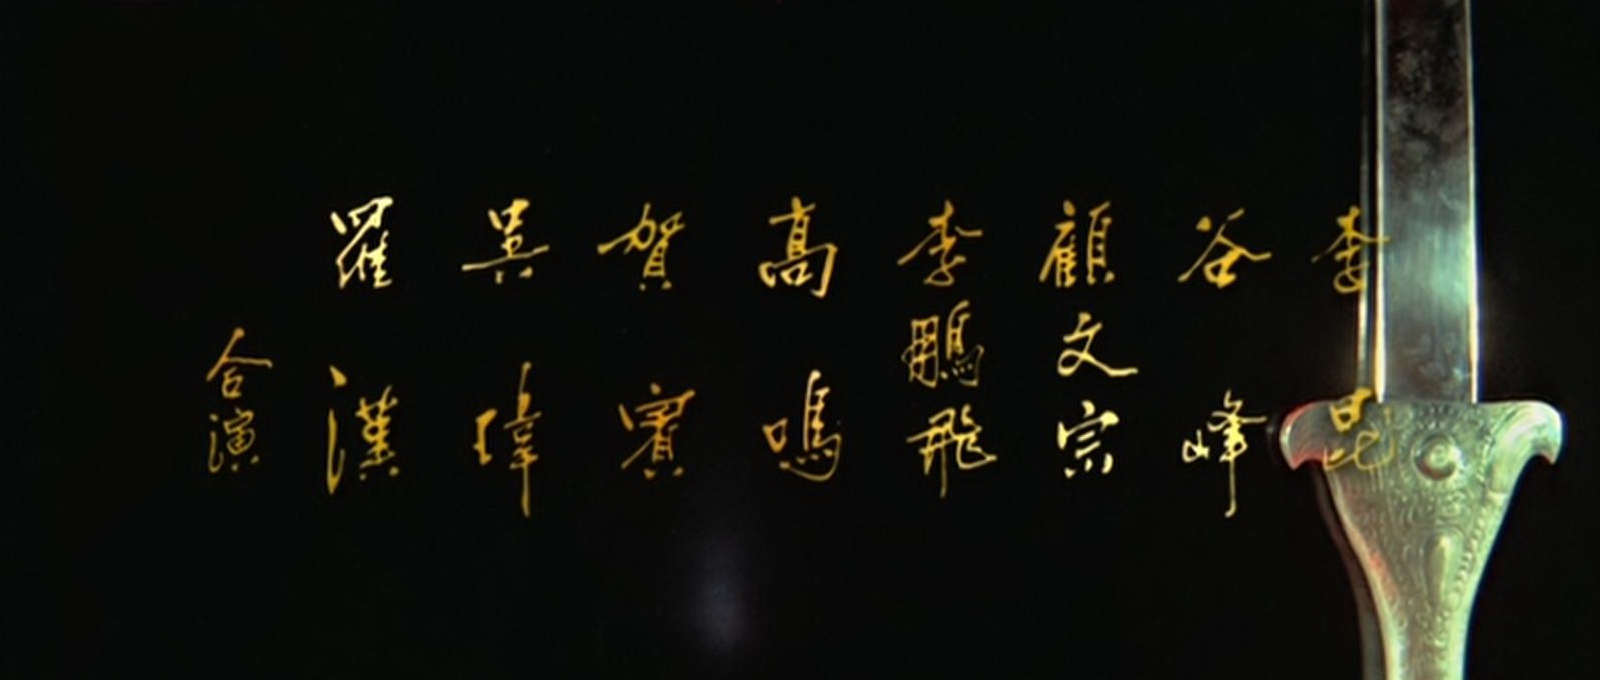 李昆
谷峰
顧文宗
李鵬飛
高鳴
賀賓
吳偉
羅漢
合演